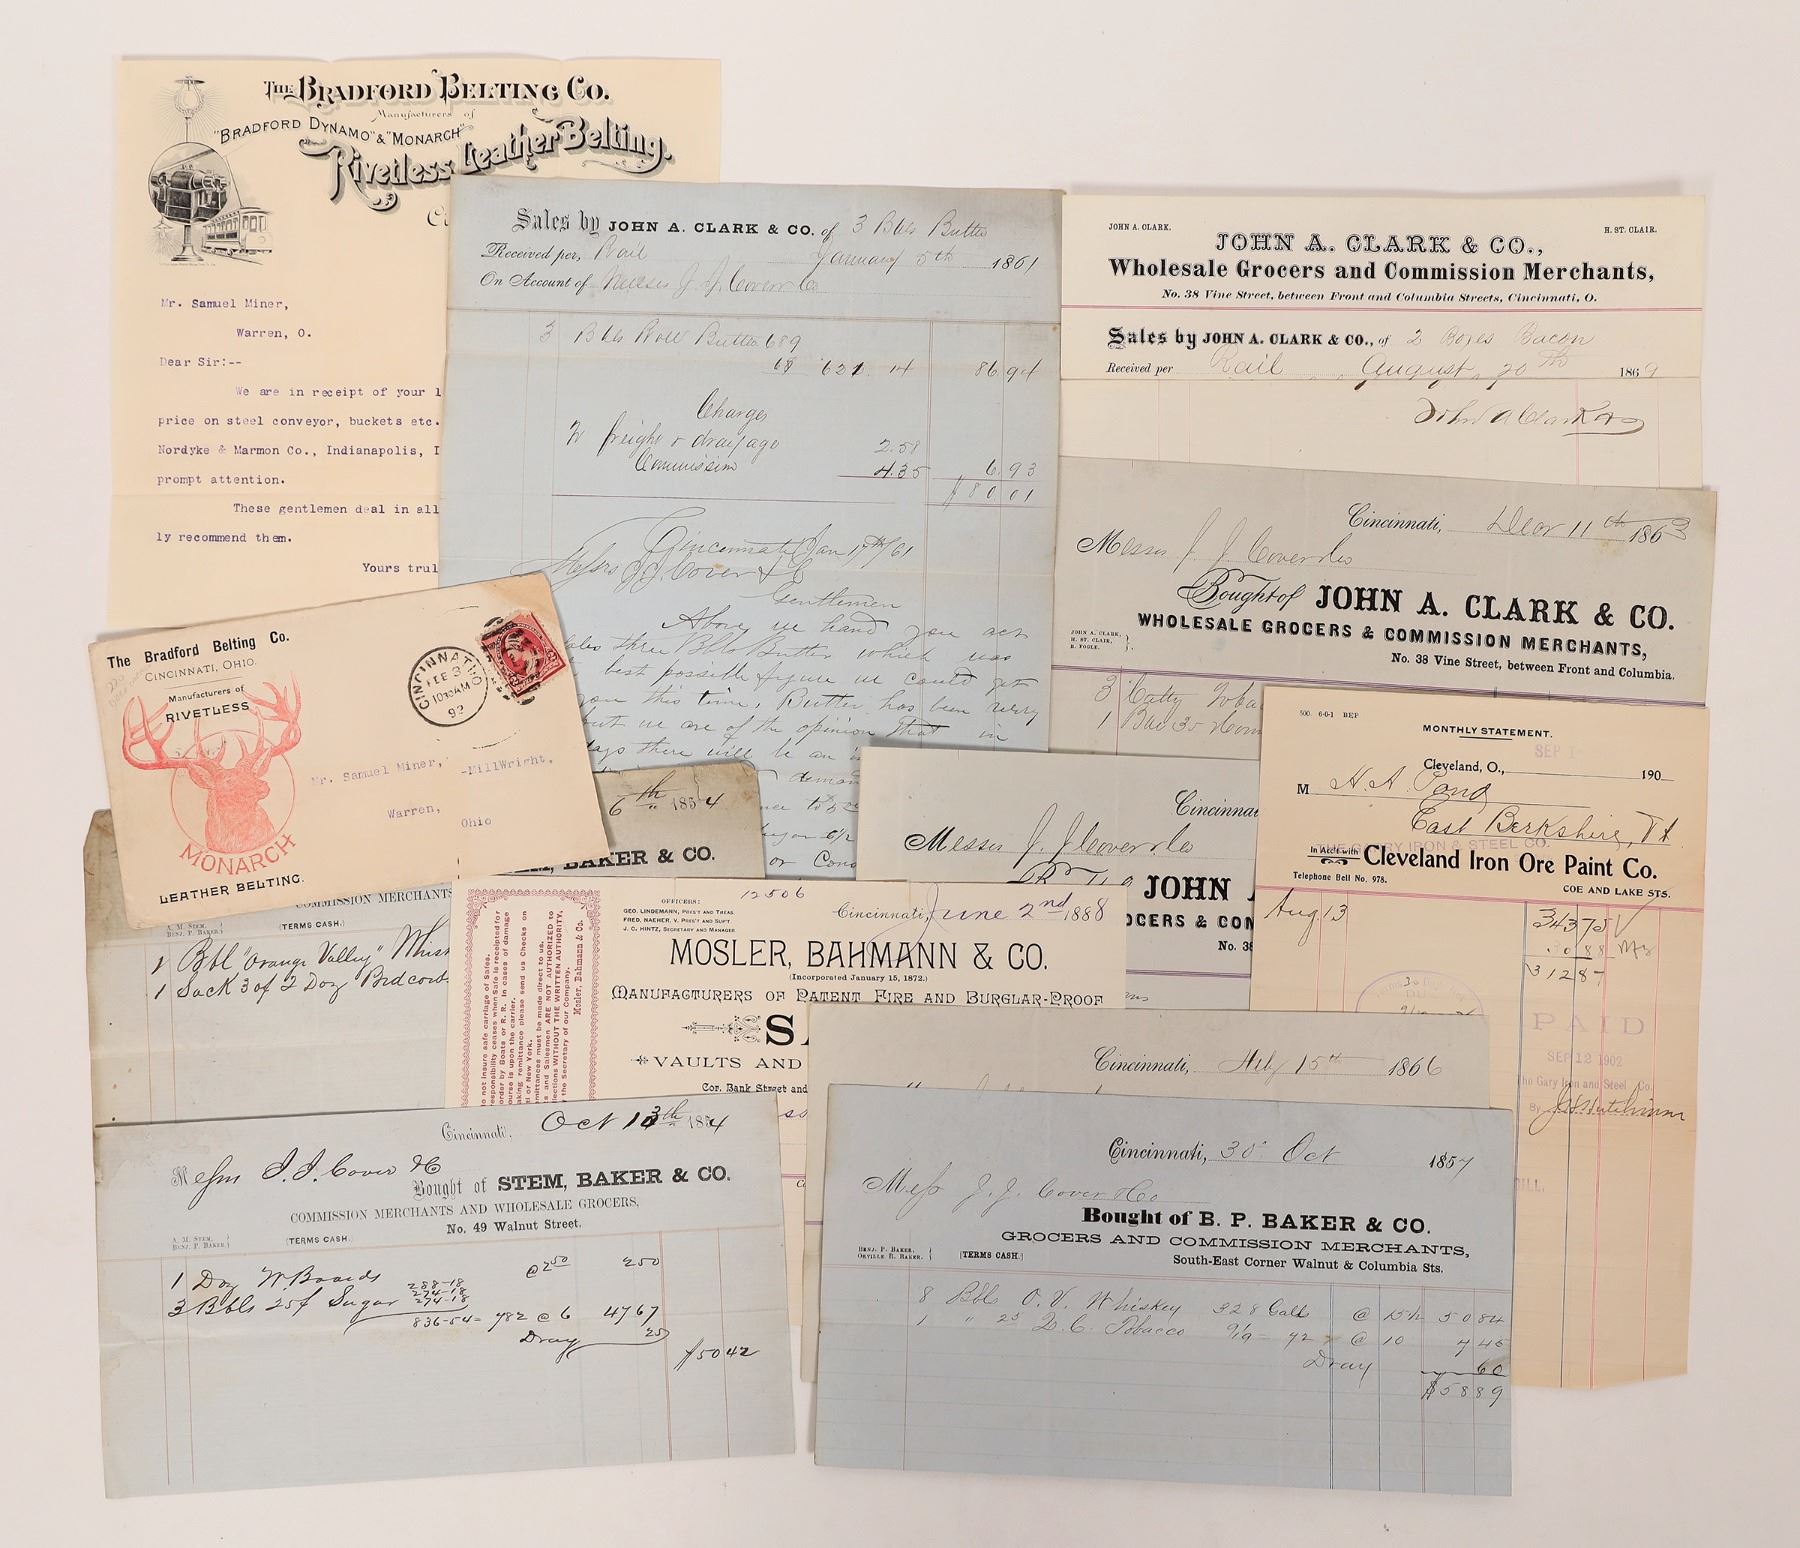 THE BRADFORD BELTING CO.
Manufacturers of
"BRADFORD DYNAMO" & "MONARCH"
Rivetless Leather Belting.
Mr. Samuel Miner,
Warren, O.
Dear Sir:--
We are in receipt of your l
price on steel conveyor, buckets etc.
Nordyke & Marmon Co., Indianapolis, I
prompt attention.
These gentlemen deal in all
ly recommend them.
Yours trul
Sales by JOHN A. CLARK & CO. of 3 Bbls Butter
Received per, Rail January 5th 1861
On Account of Messrs J. J. Cover & Co
3 Bbls Roll Butter 689
68 621 14 86.94
Charges
freight & drayage 2.58
Commission 4.35 6.93
$80.01
Cincinnati Jan 17th/61
Messrs J J Cover & Co
Gentlemen
Above we hand you act
sales three Bbls Butter which was
best possible figure we could get
you this time, Butter, has been very
but we are of the opinion that in
days there will be an
demand
JOHN A. CLARK. H. ST. CLAIR.
JOHN A. CLARK & CO.,
Wholesale Grocers and Commission Merchants,
No. 38 Vine Street, between Front and Columbia Streets, Cincinnati, O.
Sales by JOHN A. CLARK & CO., of 2 Boxes Bacon
Received per Rail August 20th 1869
John A Clark & Co
Cincinnati, Decr 11th 1863
Messrs J. J. Cover & Co
Bought of JOHN A. CLARK & CO.
WHOLESALE GROCERS & COMMISSION MERCHANTS,
JOHN A. CLARK.
H. ST. CLAIR.
R. FOGLE.
No. 38 Vine Street, between Front and Columbia.
3 Catty Toba
1 Bag 35
The Bradford Belting Co.
CINCINNATI, OHIO.
Manufacturers of
RIVETLESS
MONARCH
LEATHER BELTING.
CINCINNATI, OHIO
FEB 3
1030AM
92
Mr. Samuel Miner, -MillWright,
Warren,
Ohio
6th 1854
STEM, BAKER & CO.
COMMISSION MERCHANTS
A. M. STEM.
BENJ. P. BAKER.
(TERMS CASH.)
1 Bbl "Orange Valley" Whisk
1 Sack 3 of 2 Doz Bedcords
Cincinnati
Messrs J. J. Cover & Co
JOHN
OCERS & COM
No. 38
500. 6-0-1 BEP
MONTHLY STATEMENT.
SEP 1
Cleveland, O., 190
M H. A. Pond
East Berkshire, Vt
THE GARY IRON & STEEL CO.
In Acc't with Cleveland Iron Ore Paint Co.
Telephone Bell No. 978. COE AND LAKE STS.
Aug 13 34375
3088
31287
PAID
SEP 12 1902
The Gary Iron and Steel Co.
By
BILL.
12506
OFFICERS:
GEO. LINDEMANN, PRES'T AND TREAS.
FRED. NAEHER, V. PRES'T AND SUP'T.
J. C. HINTZ, SECRETARY AND MANAGER.
Cincinnati, June 2nd 1888
MOSLER, BAHMANN & CO.
(Incorporated January 15, 1872.)
MANUFACTURERS OF PATENT FIRE AND BURGLAR-PROOF
SA
VAULTS AND
Cor. Bank Street and
not insure safe carriage of Safes.
responsibility ceases when Safe is receipted for
order by Boats or R. R. In cases of damage
ourse is upon the carrier.
aking remittance please send us Checks on
or New York.
mittances must be made direct to us.
s and Salesmen ARE NOT AUTHORIZED to
lections WITHOUT THE WRITTEN AUTHORITY,
y the Secretary of our Company.
Mosler, Bahmann & Co.
Cincinnati, 15th 1866
Cincinnati, Oct 13th 1854
Messrs J. J. Cover & Co
Bought of STEM, BAKER & CO.
COMMISSION MERCHANTS AND WHOLESALE GROCERS,
No. 49 Walnut Street.
A. M. STEM.
BENJ. P. BAKER.
(TERMS CASH.)
1 Doz W. Boards @ 2.50 250
3 Bbls 25f Sugar 288-18
274-18
274-18
836-54= 782 @ 6 4767
Dray 25
$5042
Cincinnati, 30 Oct 1857
Mess J. J. Cover & Co
Bought of B. P. BAKER & CO.
GROCERS AND COMMISSION MERCHANTS,
BENJ. P. BAKER.
ORVILLE R. BAKER.
(TERMS CASH.)
South-East Corner Walnut & Columbia Sts.
8 Bbls O. V. Whiskey 328 Galls @ 15½ 5084
1 " 25 D. C. Tobacco @ 10 745
Dray 60
$5889